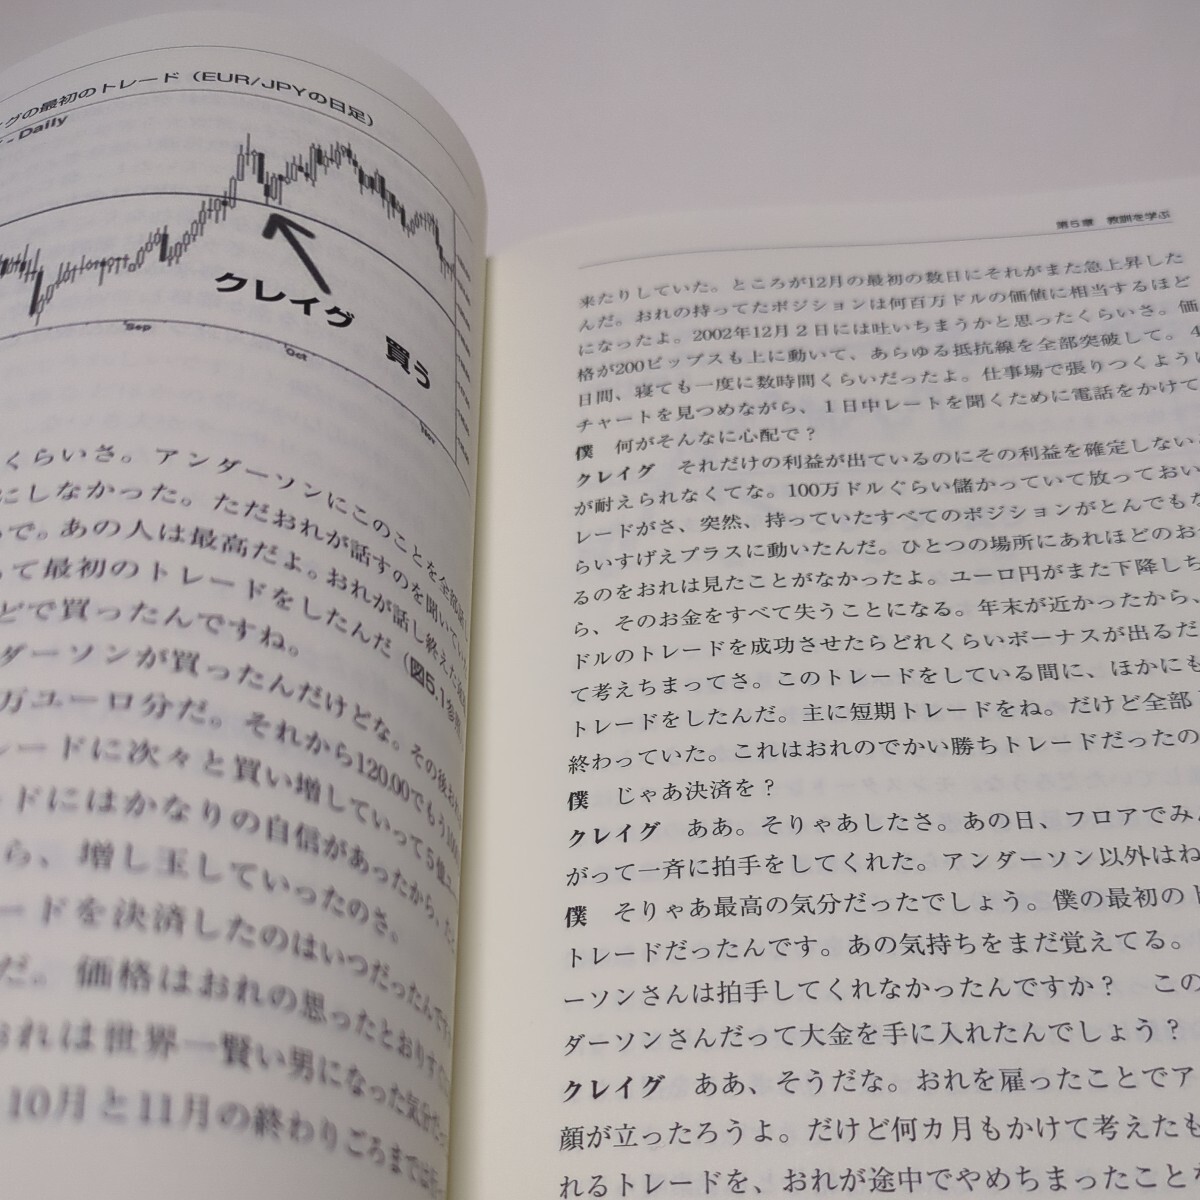 グの最初のトレード（EUR/JPYの日足）
- Daily
クレイグ 買う
Sep
Oct
Nov
くらいさ。アンダーソンにこのことを全部話し
にしなかった。ただおれが話すのを聞いていた
で。あの人は最高だよ。おれが話し終えた
て最初のトレードをしたんだ（図5.1参照
どで買ったんですね。
ダーソンが買ったんだけどな。その後お
万ユーロ分だ。それから120.00でもう
レードに次々と買い増していって5億
ードにはかなりの自信があったから、
ら、増し玉していったのさ。
ードを決済したのはいつだったんで
だ。価格はおれの思ったとおり
おれは世界一賢い男になった気分
10月と11月の終わりごろまでは
第5章 教訓を学ぶ
来たりしていた。ところが12月の最初の数日にそれがまた急上昇した
んだ。おれの持ってたポジションは何百万ドルの価値に相当するほど
になったよ。2002年12月2日には吐いちまうかと思ったくらいさ。価
格が200ピップスも上に動いて、あらゆる抵抗線を全部突破して。4
日間、寝ても一度に数時間くらいだったよ。仕事場で張りつくように
チャートを見つめながら、1日中レートを聞くために電話をかけて
僕 何がそんなに心配で？
クレイグ それだけの利益が出ているのにその利益を確定しない
が耐えられなくてな。100万ドルぐらい儲かっていて放っておい
レードがさ、突然、持っていたすべてのポジションがとんでもな
らいすげえプラスに動いたんだ。ひとつの場所にあれほどのお
るのをおれは見たことがなかったよ。ユーロ円がまた下降しち
ら、そのお金をすべて失うことになる。年末が近かったから、
ドルのトレードを成功させたらどれくらいボーナスが出るだ
て考えちまってさ。このトレードをしている間に、ほかにも
トレードをしたんだ。主に短期トレードをね。だけど全部
終わっていた。これはおれのでかい勝ちトレードだったの
僕 じゃあ決済を？
クレイグ ああ。そりゃあしたさ。あの日、フロアでみん
がって一斉に拍手をしてくれた。アンダーソン以外はね
僕 そりゃあ最高の気分だったでしょう。僕の最初の
トレードだったんです。あの気持ちをまだ覚えてる。
ーソンさんは拍手してくれなかったんですか？ この
ダーソンさんだって大金を手に入れたんでしょう？
クレイグ ああ、そうだな。おれを雇ったことでア
顔が立ったろうよ。だけど何カ月もかけて考えたも
れるトレードを、おれが途中でやめちまったことな